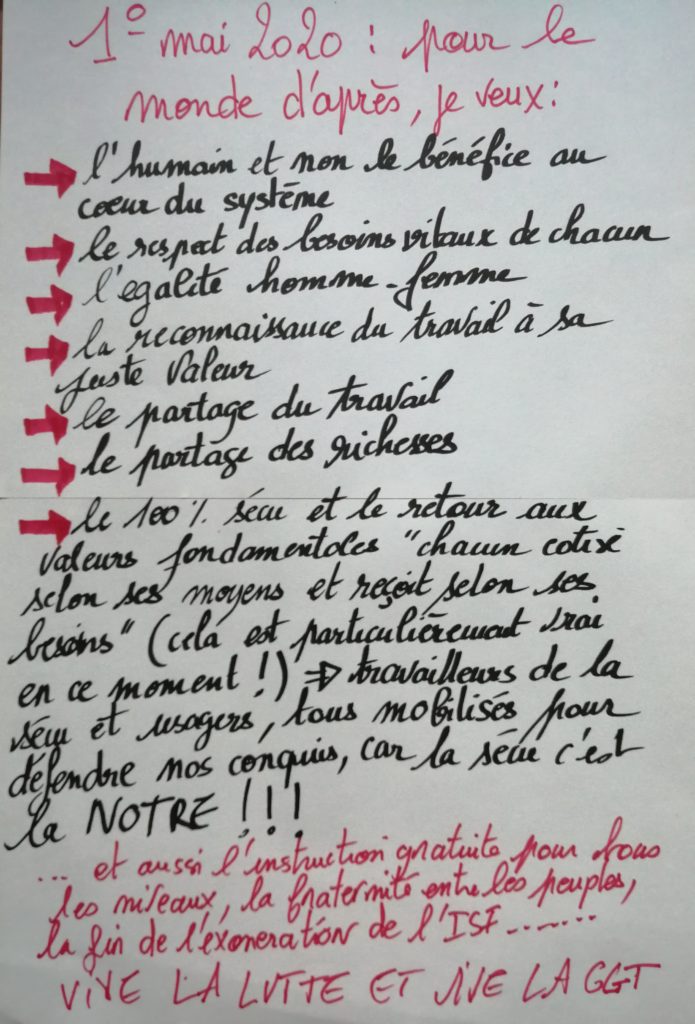 1º mai 2020 : pour le
monde d'après, je veux :
l'humain et non le bénéfice au
cœur du système
le respect des besoins vitaux de chacun
l'egalité homme-femme
la reconnaissance du travail à sa
juste valeur
le partage du travail
le partage des richesses
le 100% sécu et le retour aux
valeurs fondamentales "chacun cotise
selon ses moyens et reçoit selon ses
besoins" (cela est particulièrement vrai
en ce moment !) ⇒ travailleurs de la
sécu et usagers, tous mobilisés pour
défendre nos conquis, car la sécu c'est
la NOTRE !!!
... et aussi l'instruction gratuite pour tous
les niveaux, la fraternité entre les peuples,
la fin de l'exoneration de l'ISF .......
VIVE LA LUTTE ET VIVE LA CGT